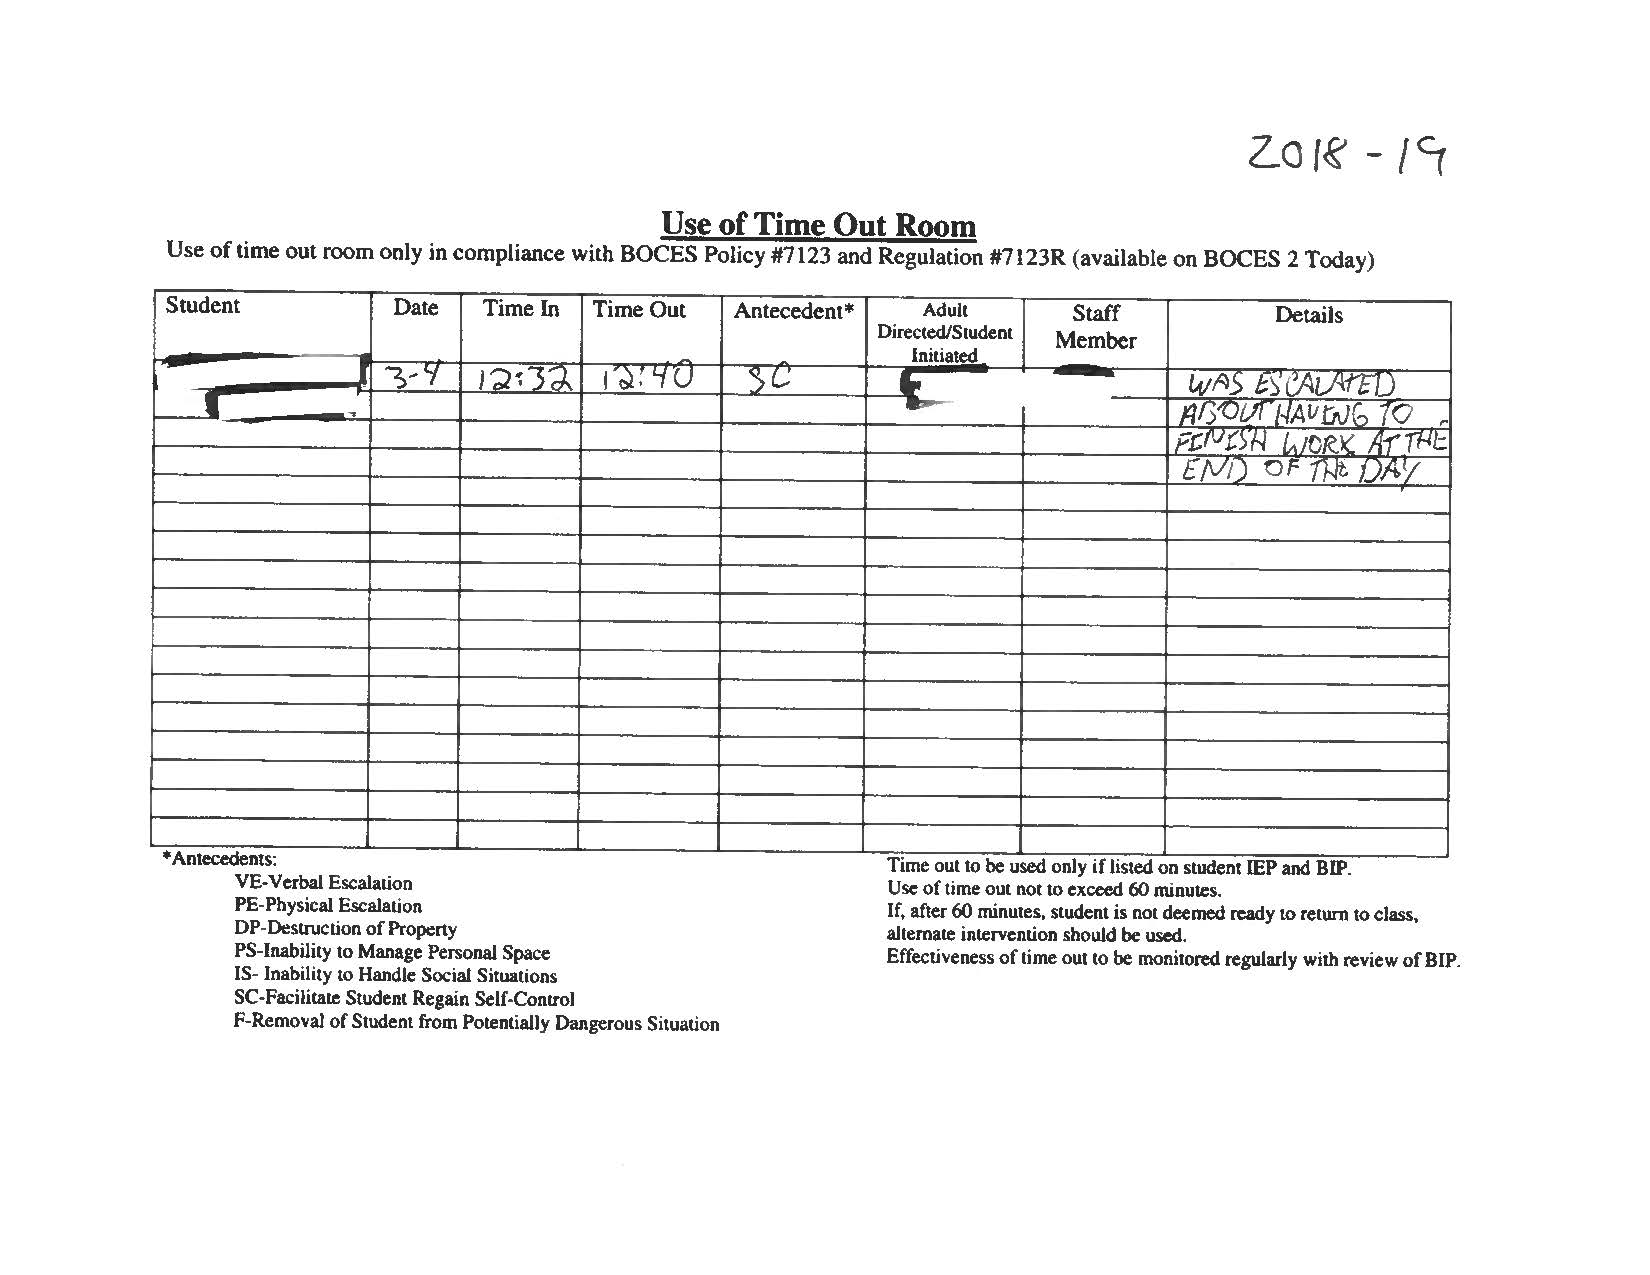 2018-19
Use of Time Out Room
Use of time out room only in compliance with BOCES Policy #7123 and Regulation #7123R (available on BOCES 2 Today)
Student Date Time In Time Out Antecedent* Adult Directed/Student Initiated Staff Member Details
3-4 12:32 12:40 SC WAS ESCALATED
ABOUT HAVING TO
FINISH WORK AT THE
END OF THE DAY
*Antecedents:
VE-Verbal Escalation
PE-Physical Escalation
DP-Destruction of Property
PS-Inability to Manage Personal Space
IS- Inability to Handle Social Situations
SC-Facilitate Student Regain Self-Control
F-Removal of Student from Potentially Dangerous Situation
Time out to be used only if listed on student IEP and BIP.
Use of time out not to exceed 60 minutes.
If, after 60 minutes, student is not deemed ready to return to class,
alternate intervention should be used.
Effectiveness of time out to be monitored regularly with review of BIP.